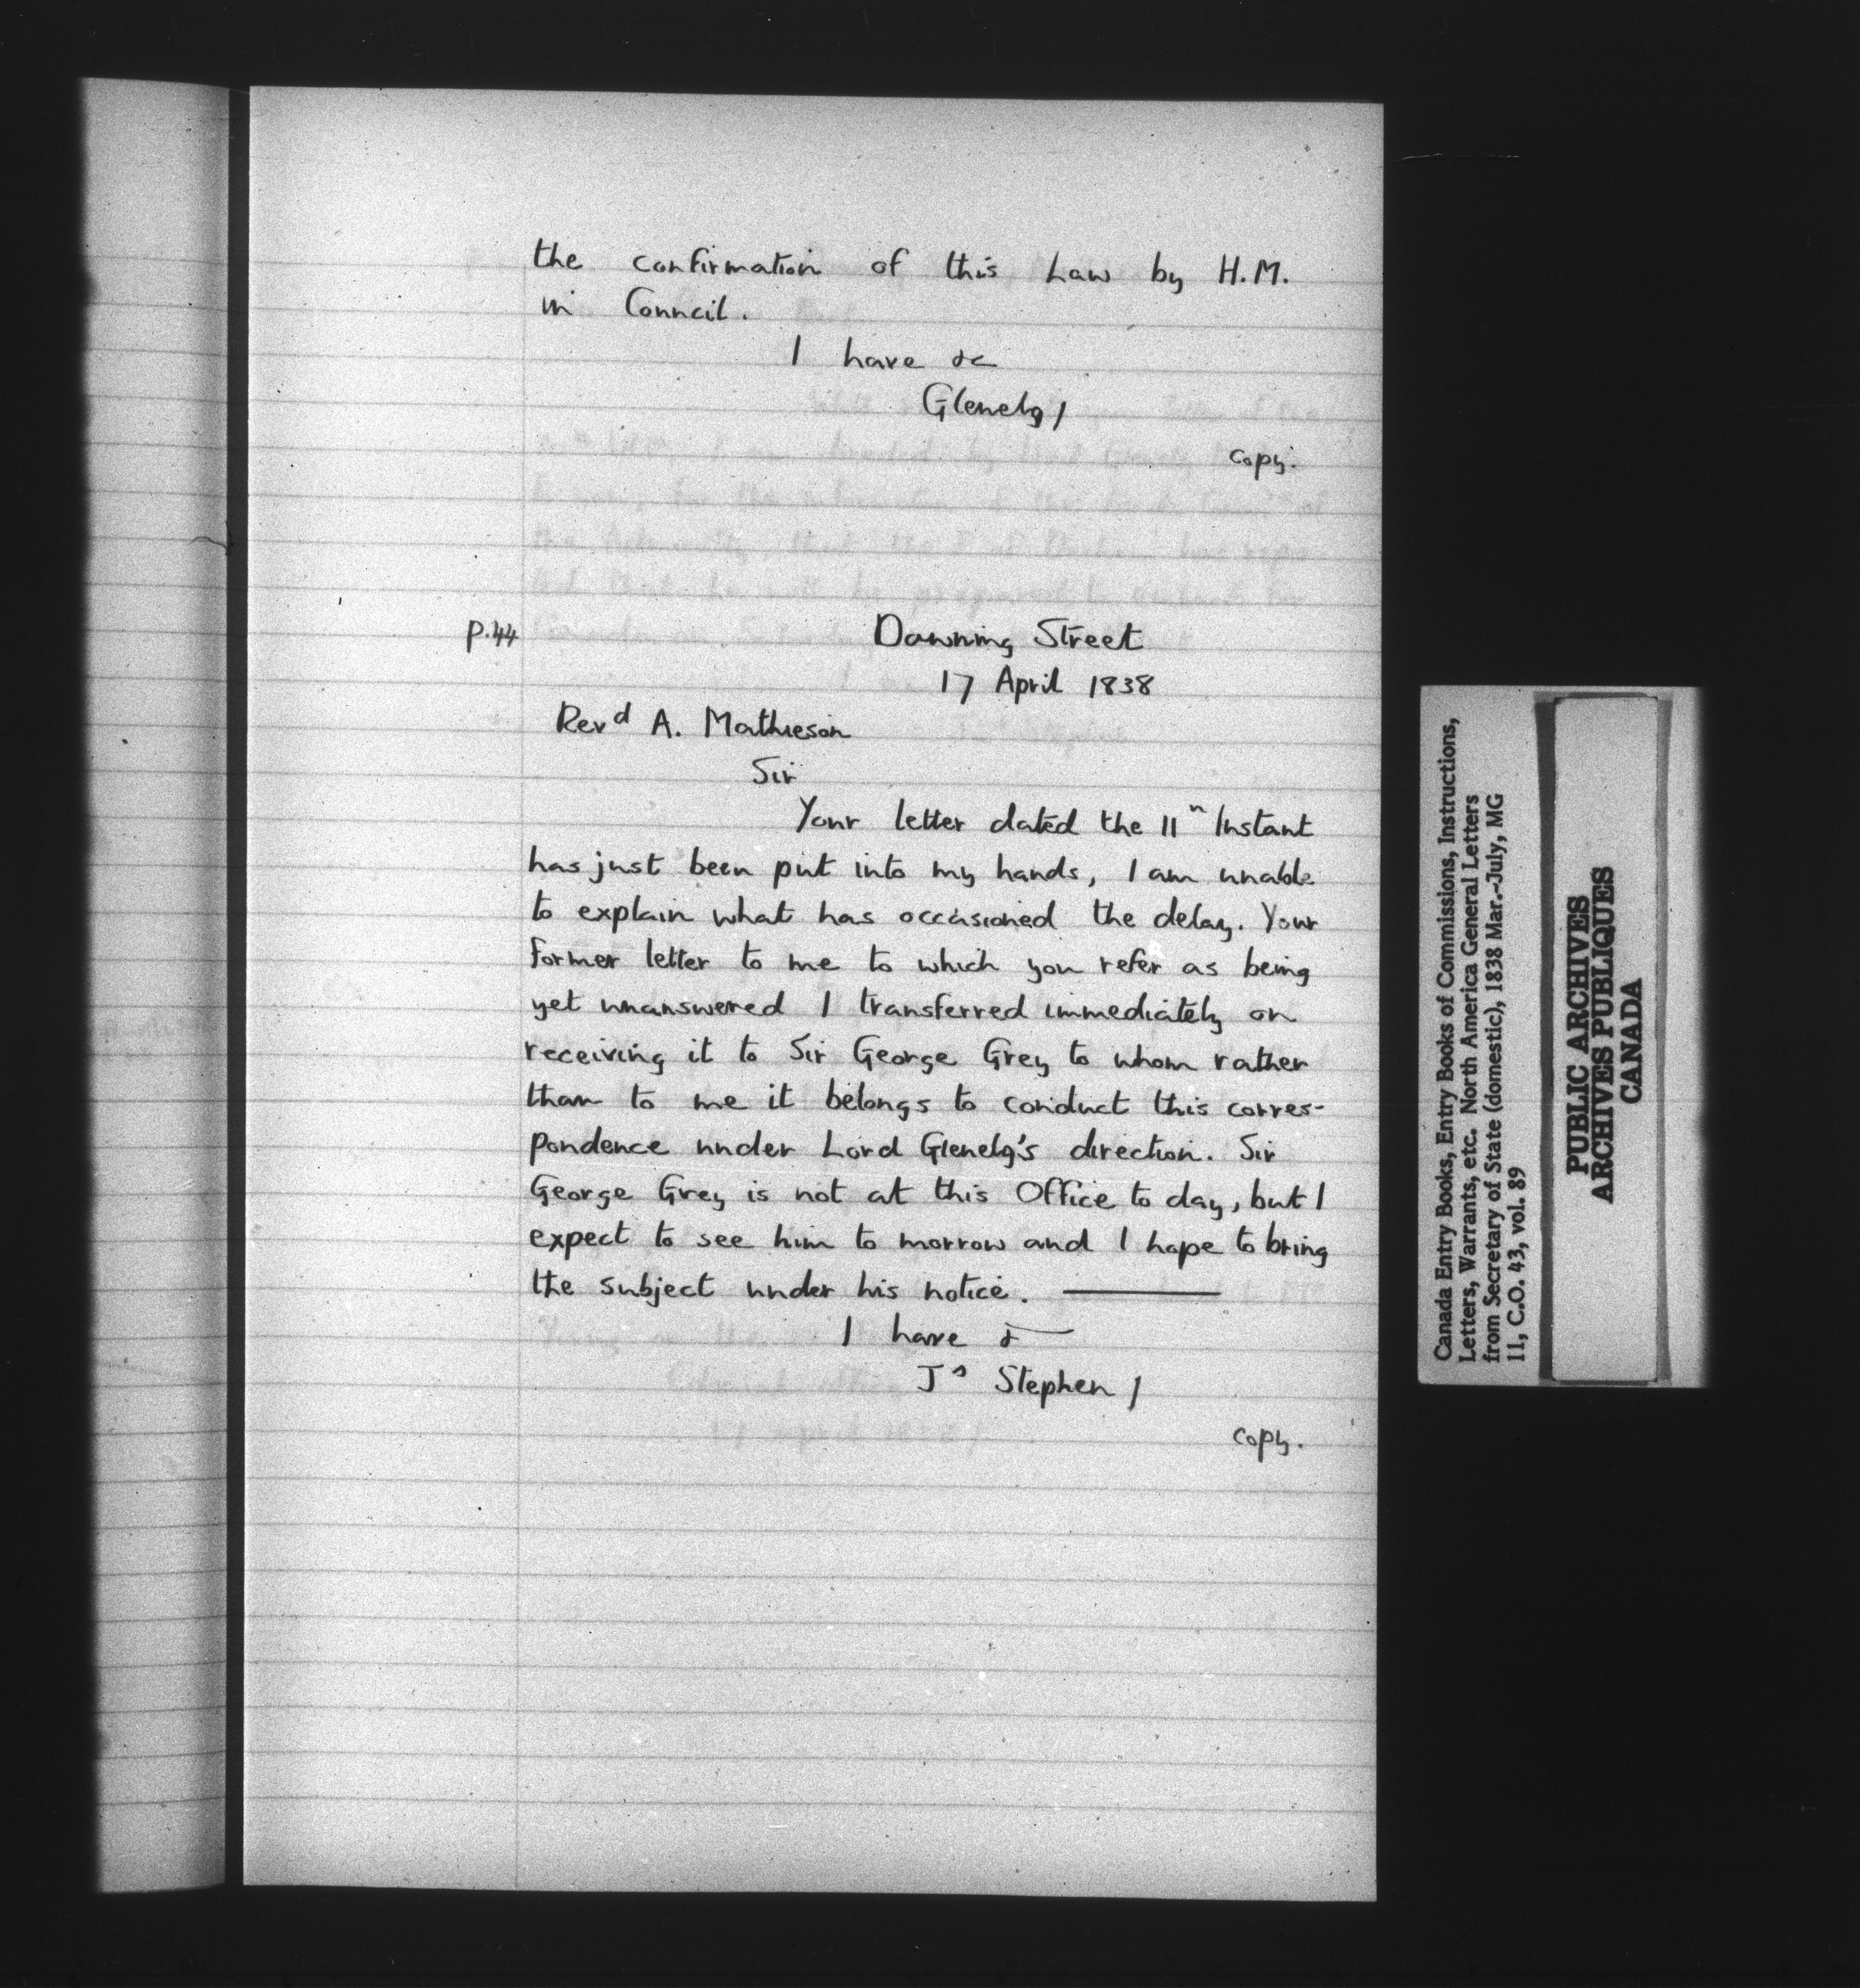 the confirmation of this Law by H.M.
in Council.
I have &c
Glenelg /
copy.
p.44
Downing Street
17 April 1838
Revd A. Mathieson
Sir
Your letter dated the 11n Instant
has just been put into my hands, I am unable
to explain what has occasioned the delay. Your
former letter to me to which you refer as being
yet unanswered I transferred immediately on
receiving it to Sir George Grey to whom rather
than to me it belongs to conduct this corres-
pondence under Lord Glenelg's direction. Sir
George Grey is not at this Office to day, but I
expect to see him to morrow and I hope to bring
the subject under his notice. ———
I have &
Js Stephen /
copy.
Canada Entry Books, Entry Books of Commissions, Instructions,
Letters, Warrants, etc. North America General Letters
from Secretary of State (domestic), 1838 Mar.-July, MG
11, C.O. 43, vol. 89
PUBLIC ARCHIVES
ARCHIVES PUBLIQUES
CANADA